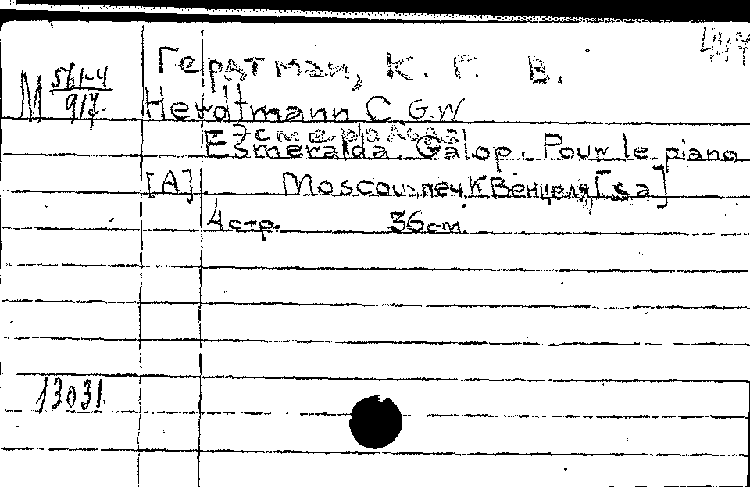 Гердтман, К. Г. В.
М 561-4
917
Herdtmann C. G. W
Эсмеральда
Esmeralda. Galop. Pour le piano
[A] Moscou, печ. К Венцеля, [s a]
4 стр. 36 см.
13031